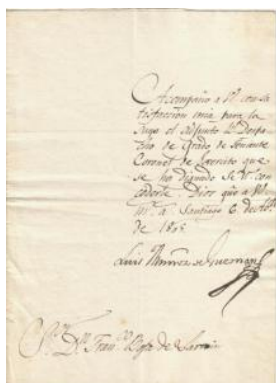 Acompaño a V. con sa
tisfaccion mia para la
suya el adjunto Rl. Despa
cho de Grado de Teniente
Coronel de Exercito que
se ha dignado S. M. con
cederle. Dios gue. a V.
ms. as. Santiago 6 de
de 18
Luis Muñoz de Guzman
Sor. Dn. Franco. de